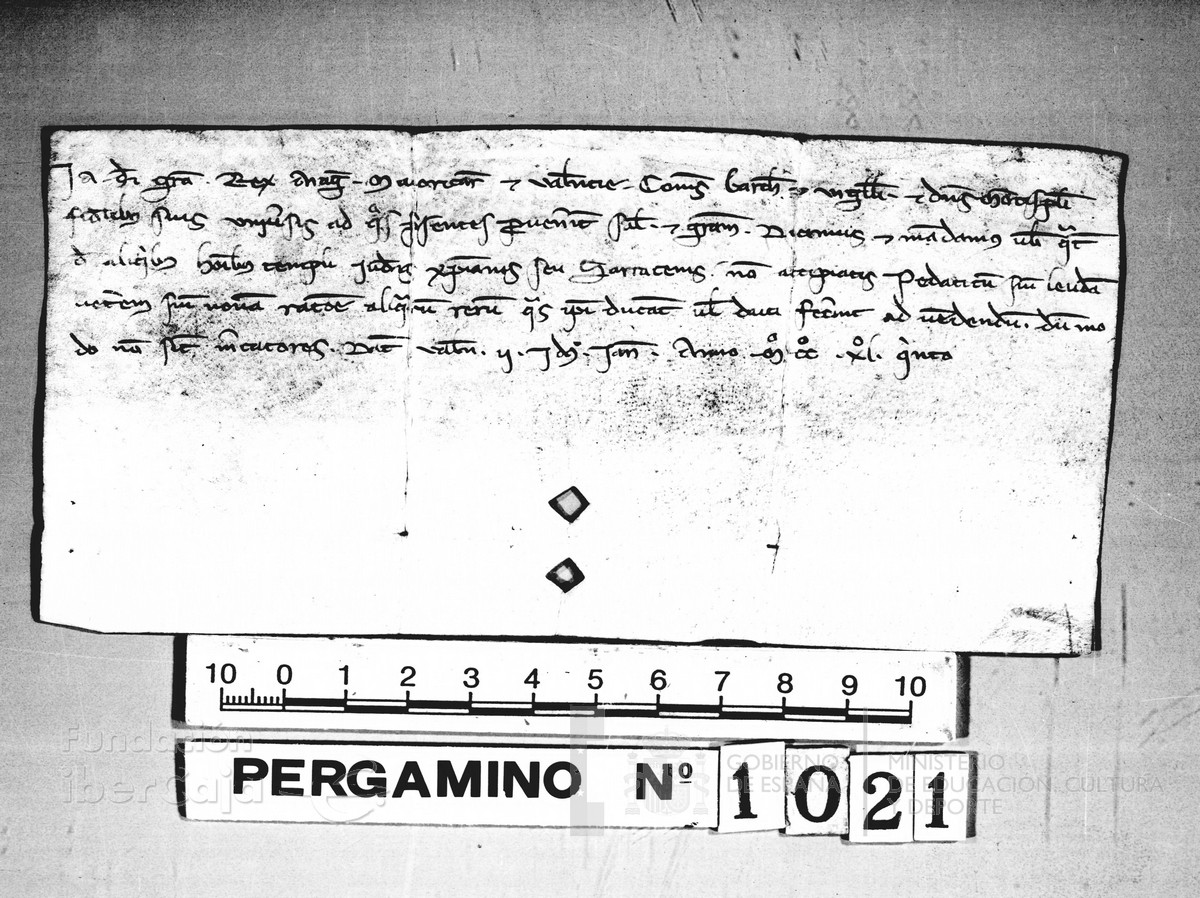 Ja. di gra. Rex Arag. Maioricar. ⁊ Valencie. Comes barch. ⁊ urgelli. ⁊ dns montispli
fidelibus suis universis ad qs presentes pervenerit sal. ⁊ gram. Dicimus ⁊ mandamus vob qt
de aliqibus hoibus templi Judeis xpianis seu Sarracenis. no accipiatis Pedaticu siu leuda
veterem siu nova ratoe aliqaru reru qs ipi ducat vl duci fecerint ad vendendu. du mo
do no sit mcatores. Dat Valn. ij. Id. Jan. Anno M. cc. xl. qinto
10 0 1 2 3 4 5 6 7 8 9 10
PERGAMINO Nº 1021
Fundación
iberCaja
GOBIERNO
DE ESPAÑA
MINISTERIO
DE EDUCACIÓN, CULTURA
Y DEPORTE